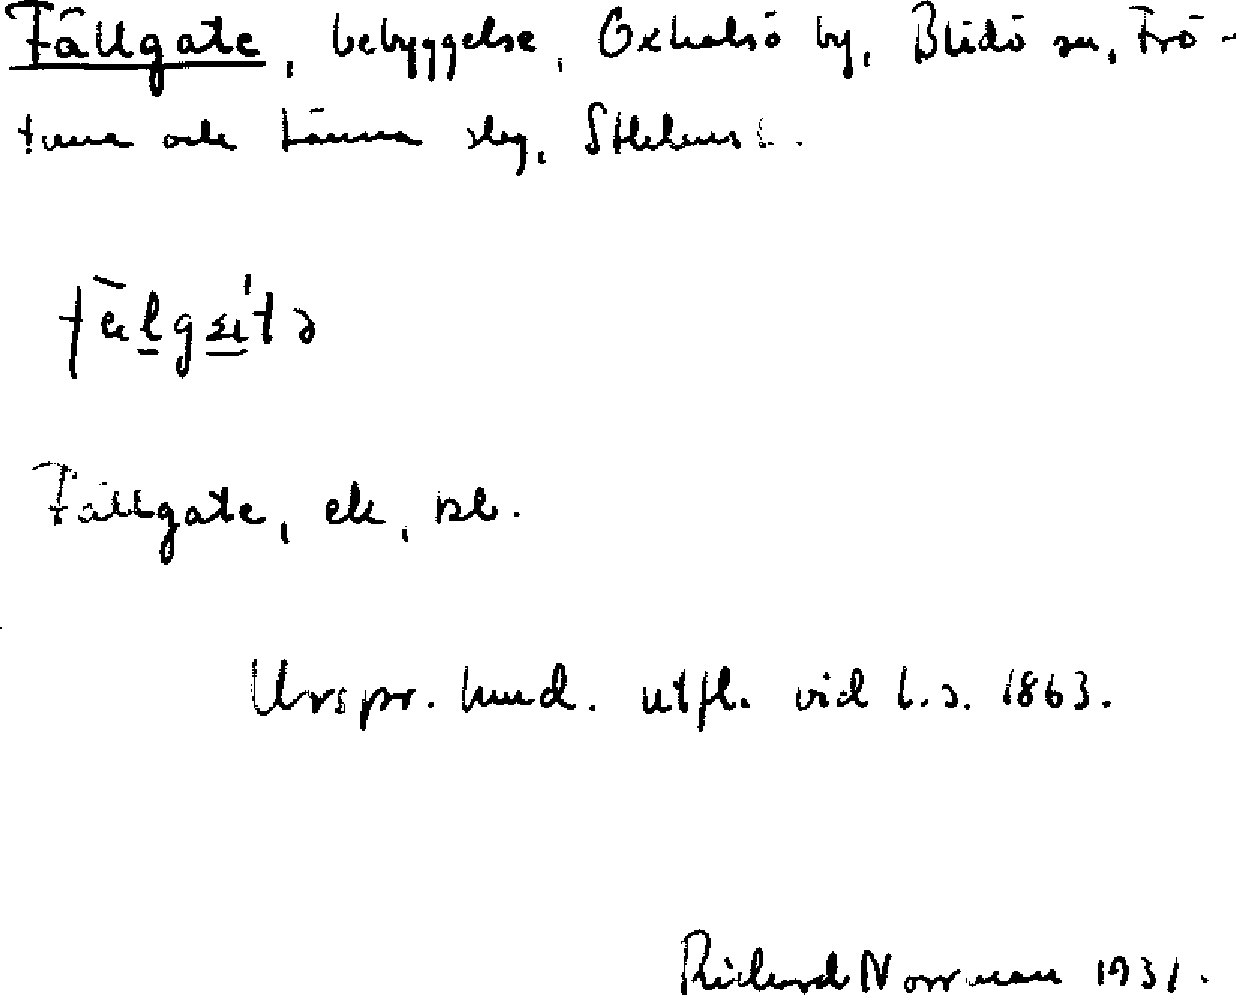 Fällgate, bebyggelse, Oxhalsö by, Blidö sn, Frö-
tuna och Länna slag, Sthlms l.
Fällgate, ek, kbl.
Urspr. hmd. utfl. vid l.s. 1863.
Richard Norrman 1931.